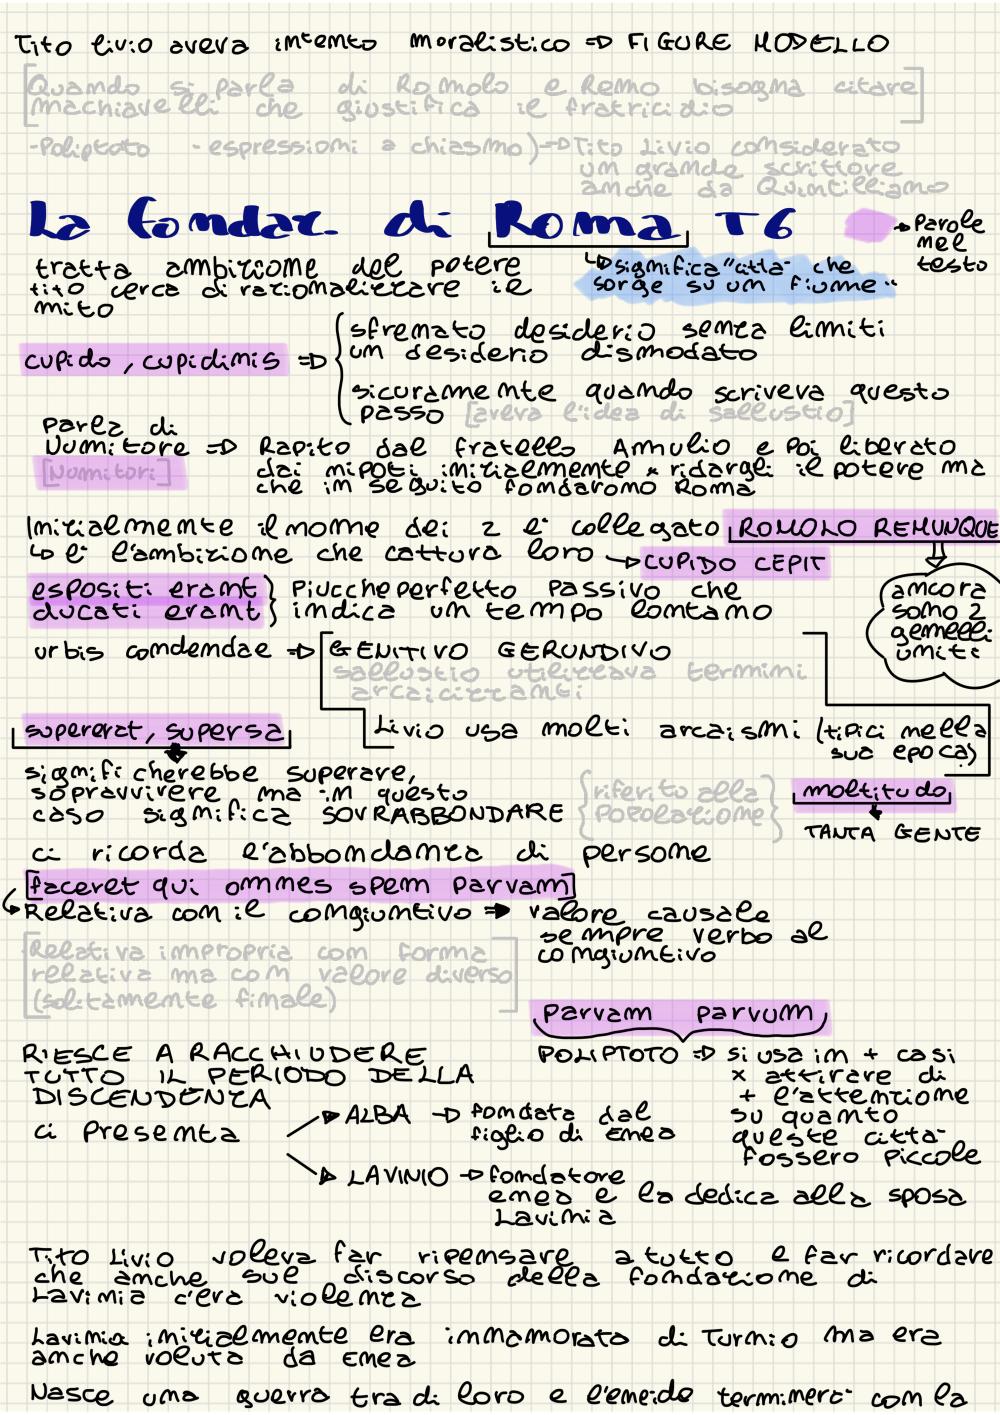 Tito Livio aveva intento moralistico => FIGURE MODELLO
[Quando si parla di Romolo e Remo bisogna citare
machiavelli che giustifica il fratricidio]
-Poliptoto -espressioni a chiasmo)->Tito Livio considerato
un grande scrittore
anche da Quintilliano
La fondaz. di Roma T6
->Parole
nel
testo
↳significa "città" che
sorge su un fiume"
tratta ambizione del potere
tito cerca di razionalizzare il
mito
cupido, cupidinis => {sfrenato desiderio senza limiti
un desiderio dismodato
sicuramente quando scriveva questo
passo [aveva l'idea di sallustio]
Parla di
Numitore => Rapito dal fratello Amulio e poi liberato
[Numitori] dai nipoti inizialmente x ridargli il potere ma
che in seguito fondarono Roma
Inizialmente il nome dei 2 è collegato ROMOLO REMUNQUE
↳ è l'ambizione che cattura loro ->CUPIDO CEPIT
ancora
sono 2
gemelli
uniti
espositi erant} Piuccheperfetto Passivo che
ducati erant} indica un tempo lontano
urbis condendae => GENITIVO GERUNDIVO
sallustio utilizzava termini
arcaicizzanti
Livio usa molti arcaismi (tipici nella
sua epoca)
supererat, supersa
significherebbe superare,
sopravvivere ma in questo
caso significa SOVRABBONDARE
{riferito alla
Popolazione}
moltitudo
TANTA GENTE
ci ricorda l'abbondanza di persone
[faceret qui omnes spem parvam]
Relativa con il congiuntivo => valore causale
sempre verbo al
congiuntivo
[Relativa impropria con forma
relativa ma con valore diverso
(solitamente finale)]
Parvam parvum
POLIPTOTO => si usa in + casi
x attirare di
+ l'attenzione
su quanto
queste città
fossero piccole
RIESCE A RACCHIUDERE
TUTTO IL PERIODO DELLA
DISCENDENZA
ci presenta
ALBA -> fondata dal
figlio di Enea
LAVINIO -> fondatore
enea e la dedica alla sposa
Lavinia
Tito Livio voleva far ripensare a tutto e far ricordare
che anche sul discorso della fondazione di
Lavinia c'era violenza
Lavinia inizialmente era innamorata di Turnio ma era
anche voluta da Enea
Nasce una guerra tra di loro e l'eneide terminerà con la